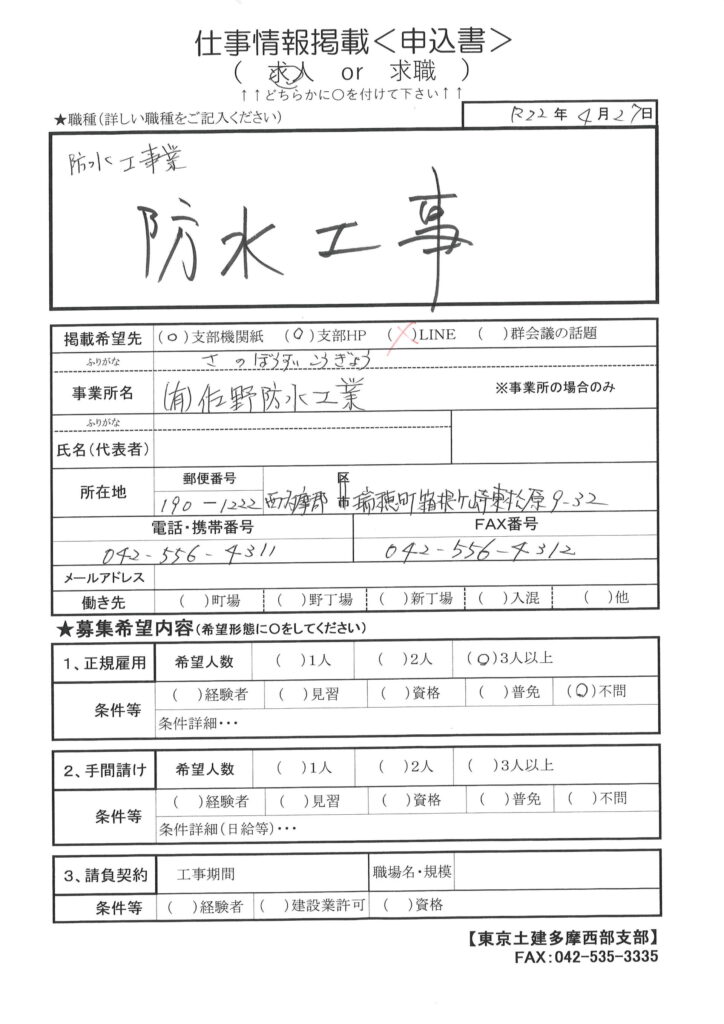 仕事情報掲載＜申込書＞
( 求人 or 求職 )
↑↑どちらかに○を付けて下さい↑↑
★職種(詳しい職種をご記入ください)
R22年4月27日
防水工事業
防水工事
掲載希望先 (○)支部機関紙 (○)支部HP (×)LINE ( )群会議の話題
ふりがな さのぼうすいこうぎょう
事業所名 (有)佐野防水工業 ※事業所の場合のみ
ふりがな
氏名(代表者)
所在地 郵便番号 区
190-1222 西多摩郡 市 瑞穂町箱根ケ崎東松原9-32
電話・携帯番号 FAX番号
042-556-4311 042-556-4312
メールアドレス
働き先 ( )町場 ( )野丁場 ( )新丁場 ( )入混 ( )他
★募集希望内容(希望形態に○をしてください)
1、正規雇用 希望人数 ( )1人 ( )2人 (○)3人以上
条件等 ( )経験者 ( )見習 ( )資格 ( )普免 (○)不問
条件詳細・・・
2、手間請け 希望人数 ( )1人 ( )2人 ( )3人以上
条件等 ( )経験者 ( )見習 ( )資格 ( )普免 ( )不問
条件詳細(日給等)・・・
3、請負契約 工事期間 職場名・規模
条件等 ( )経験者 ( )建設業許可 ( )資格
【東京土建多摩西部支部】
FAX:042-535-3335